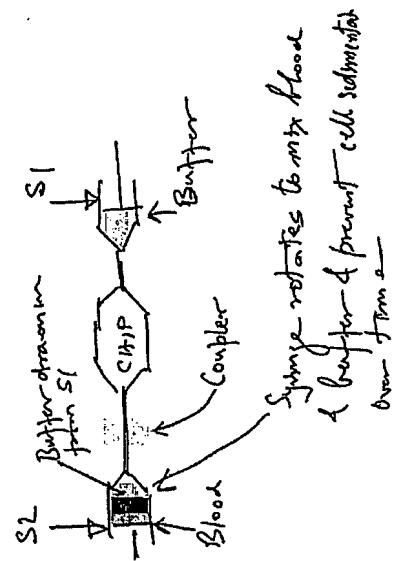 S2
S1
Buffer drawn in
from S1
CHIP
Buffer
Coupler
Blood
Syringe rotates to mix blood
& buffer & prevent cell sedimentation
over time